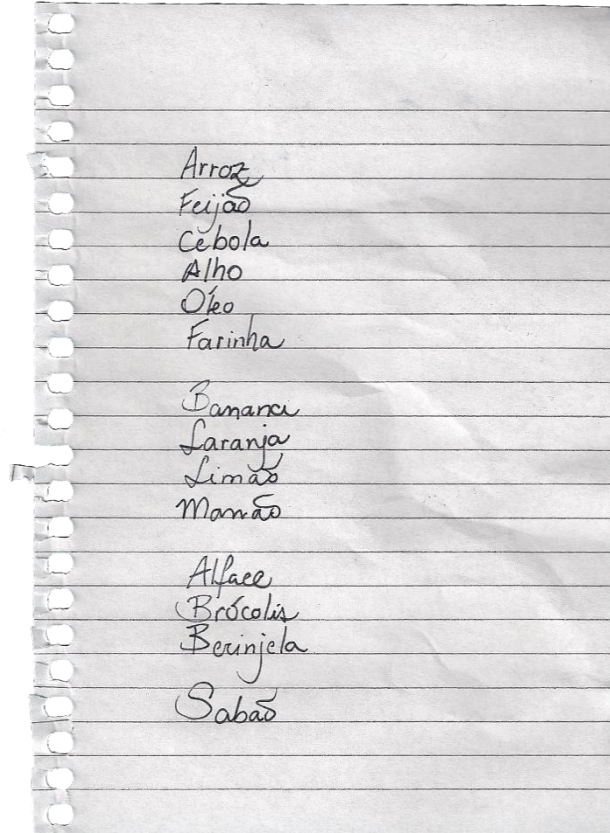 Arroz
Feijão
Cebola
Alho
Óleo
Farinha
Banana
Laranja
Limão
Mamão
Alface
Brócolis
Berinjela
Sabão